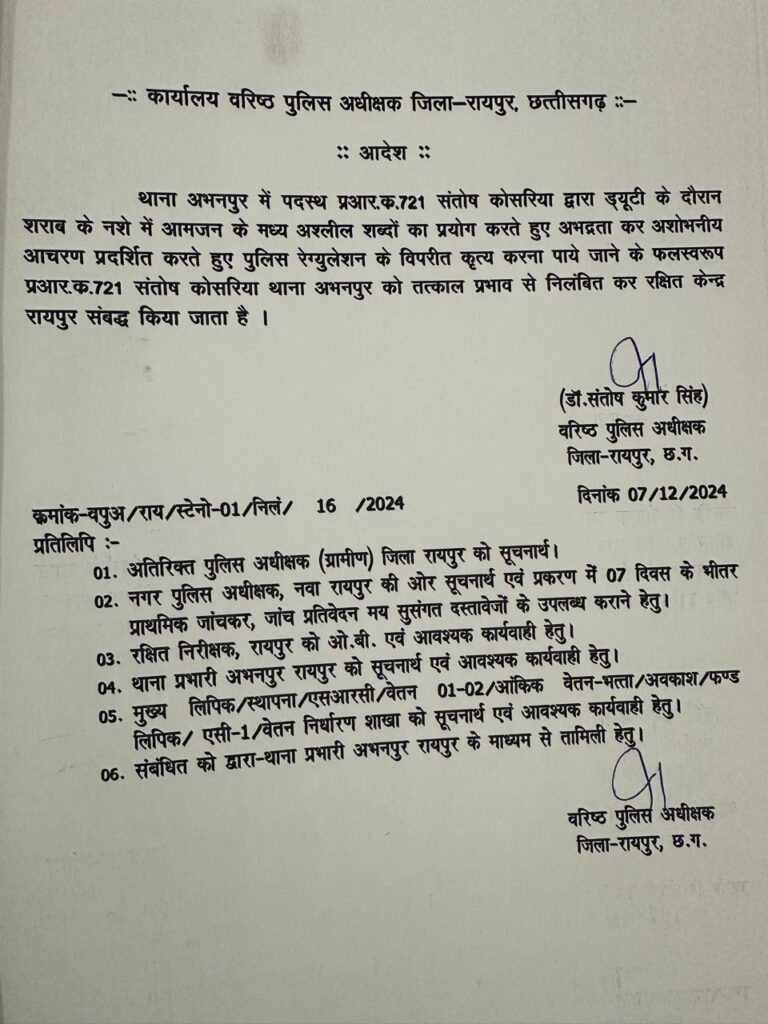 –:: कार्यालय वरिष्ठ पुलिस अधीक्षक जिला–रायपुर, छत्तीसगढ़ ::–
:: आदेश ::
थाना अभनपुर में पदस्थ प्रआर.क.721 संतोष कोसरिया द्वारा ड्यूटी के दौरान
शराब के नशे में आमजन के मध्य अश्लील शब्दों का प्रयोग करते हुए अभद्रता कर अशोभनीय
आचरण प्रदर्शित करते हुए पुलिस रेग्युलेशन के विपरीत कृत्य करना पाये जाने के फलस्वरूप
प्रआर.क.721 संतोष कोसरिया थाना अभनपुर को तत्काल प्रभाव से निलंबित कर रक्षित केन्द्र
रायपुर संबद्ध किया जाता है ।
(डॉ.संतोष कुमार सिंह)
वरिष्ठ पुलिस अधीक्षक
जिला-रायपुर, छ.ग.
क्रमांक-वपुअ/राय/स्टेनो-01/निलं/ 16 /2024 दिनांक 07/12/2024
प्रतिलिपि :-
01. अतिरिक्त पुलिस अधीक्षक (ग्रामीण) जिला रायपुर को सूचनार्थ।
02. नगर पुलिस अधीक्षक, नवा रायपुर की ओर सूचनार्थ एवं प्रकरण में 07 दिवस के भीतर
प्राथमिक जांचकर, जांच प्रतिवेदन मय सुसंगत दस्तावेजों के उपलब्ध कराने हेतु।
03. रक्षित निरीक्षक, रायपुर को ओ.बी. एवं आवश्यक कार्यवाही हेतु।
04. थाना प्रभारी अभनपुर रायपुर को सूचनार्थ एवं आवश्यक कार्यवाही हेतु।
05. मुख्य लिपिक/स्थापना/एसआरसी/वेतन 01-02/आंकिक वेतन-भत्ता/अवकाश/फण्ड
लिपिक/ एसी-1/वेतन निर्धारण शाखा को सूचनार्थ एवं आवश्यक कार्यवाही हेतु।
06. संबंधित को द्वारा-थाना प्रभारी अभनपुर रायपुर के माध्यम से तामिली हेतु।
वरिष्ठ पुलिस अधीक्षक
जिला-रायपुर, छ.ग.